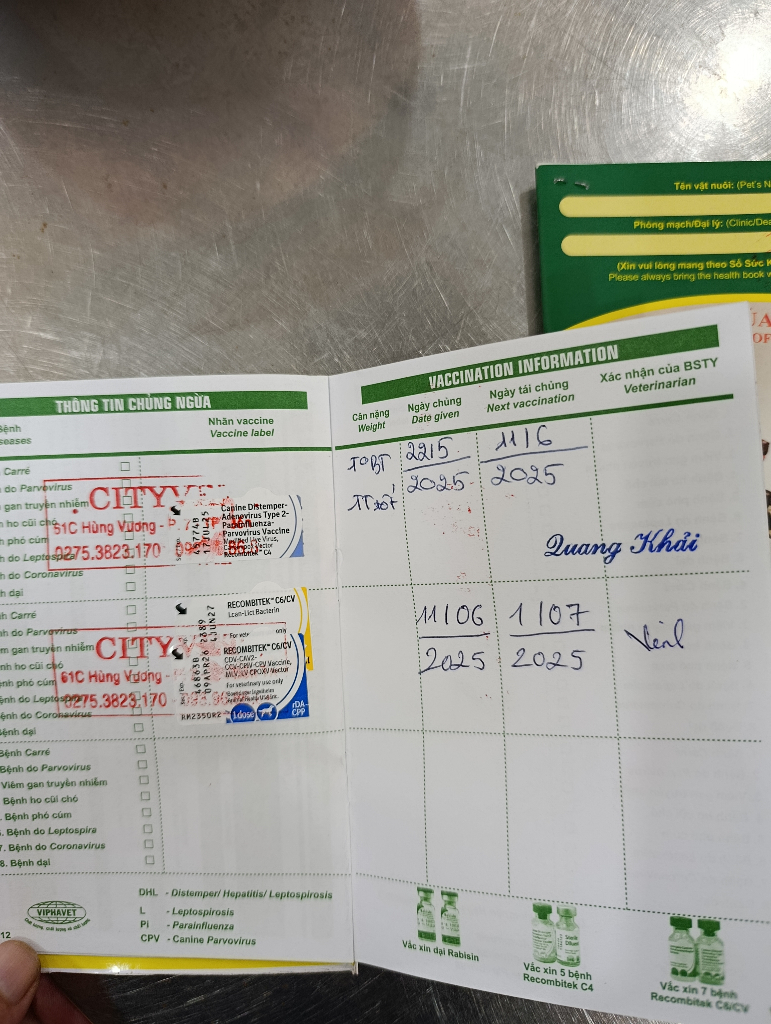 Tên vật nuôi: (Pet's N
Phòng mạch/Đại lý: (Clinic/Dea
(Xin vui lòng mang theo Sổ Sức K
Please always bring the health book w
OF
THÔNG TIN CHỦNG NGỪA
Bệnh
seases
Nhãn vaccine
Vaccine label
Carré
h do Parvovirus
gan truyền nhiễm
nh ho cũi chó
phó cúm
h do Leptospira
h do Coronavirus
h dại
CITYV
61C Hùng Vương - P. 7
0275.3823.170
Canine Distemper-
Adenovirus Type 2-
Parainfluenza-
Parvovirus Vaccine
Modified Live Virus,
Recombitek® C4
17JUL25
nh Carré
nh do Parvovirus
m gan truyền nhiễm
ệnh ho cũi chó
ệnh phó cúm
ệnh do Leptospira
ệnh do Coronavirus
Bệnh dại
CITY
61C Hùng Vương -
0275.3823.170
RECOMBITEK™ C6/CV
Lcan-Lict Bacterin
For vete only
RECOMBITEK™ C6/CV
CDV-CAV2-
MLV/LV CPOXV Vector
For veterinary use only
46863B
09APR26
4JUN27
RM2350R2
1 dose
rDA-
CPP
Bệnh Carré
Bệnh do Parvovirus
Viêm gan truyền nhiễm
Bệnh ho cũi chó
Bệnh phó cúm
. Bệnh do Leptospira
7. Bệnh do Coronavirus
8. Bệnh dại
DHL - Distemper/ Hepatitis/ Leptospirosis
L - Leptospirosis
Pi - Parainfluenza
CPV - Canine Parvovirus
VIPHAVET
12
VACCINATION INFORMATION
Cân nặng
Weight
Ngày chủng
Date given
Ngày tái chủng
Next vaccination
Xác nhận của BSTY
Veterinarian
T°BT
TT tốt
22/5
2025
11/6
2025
Quang Khải
11/06
2025
1/07
2025
Vắc xin dại Rabisin
Vắc xin 5 bệnh
Recombitek C4
Vắc xin 7 bệnh
Recombitek C6/CV